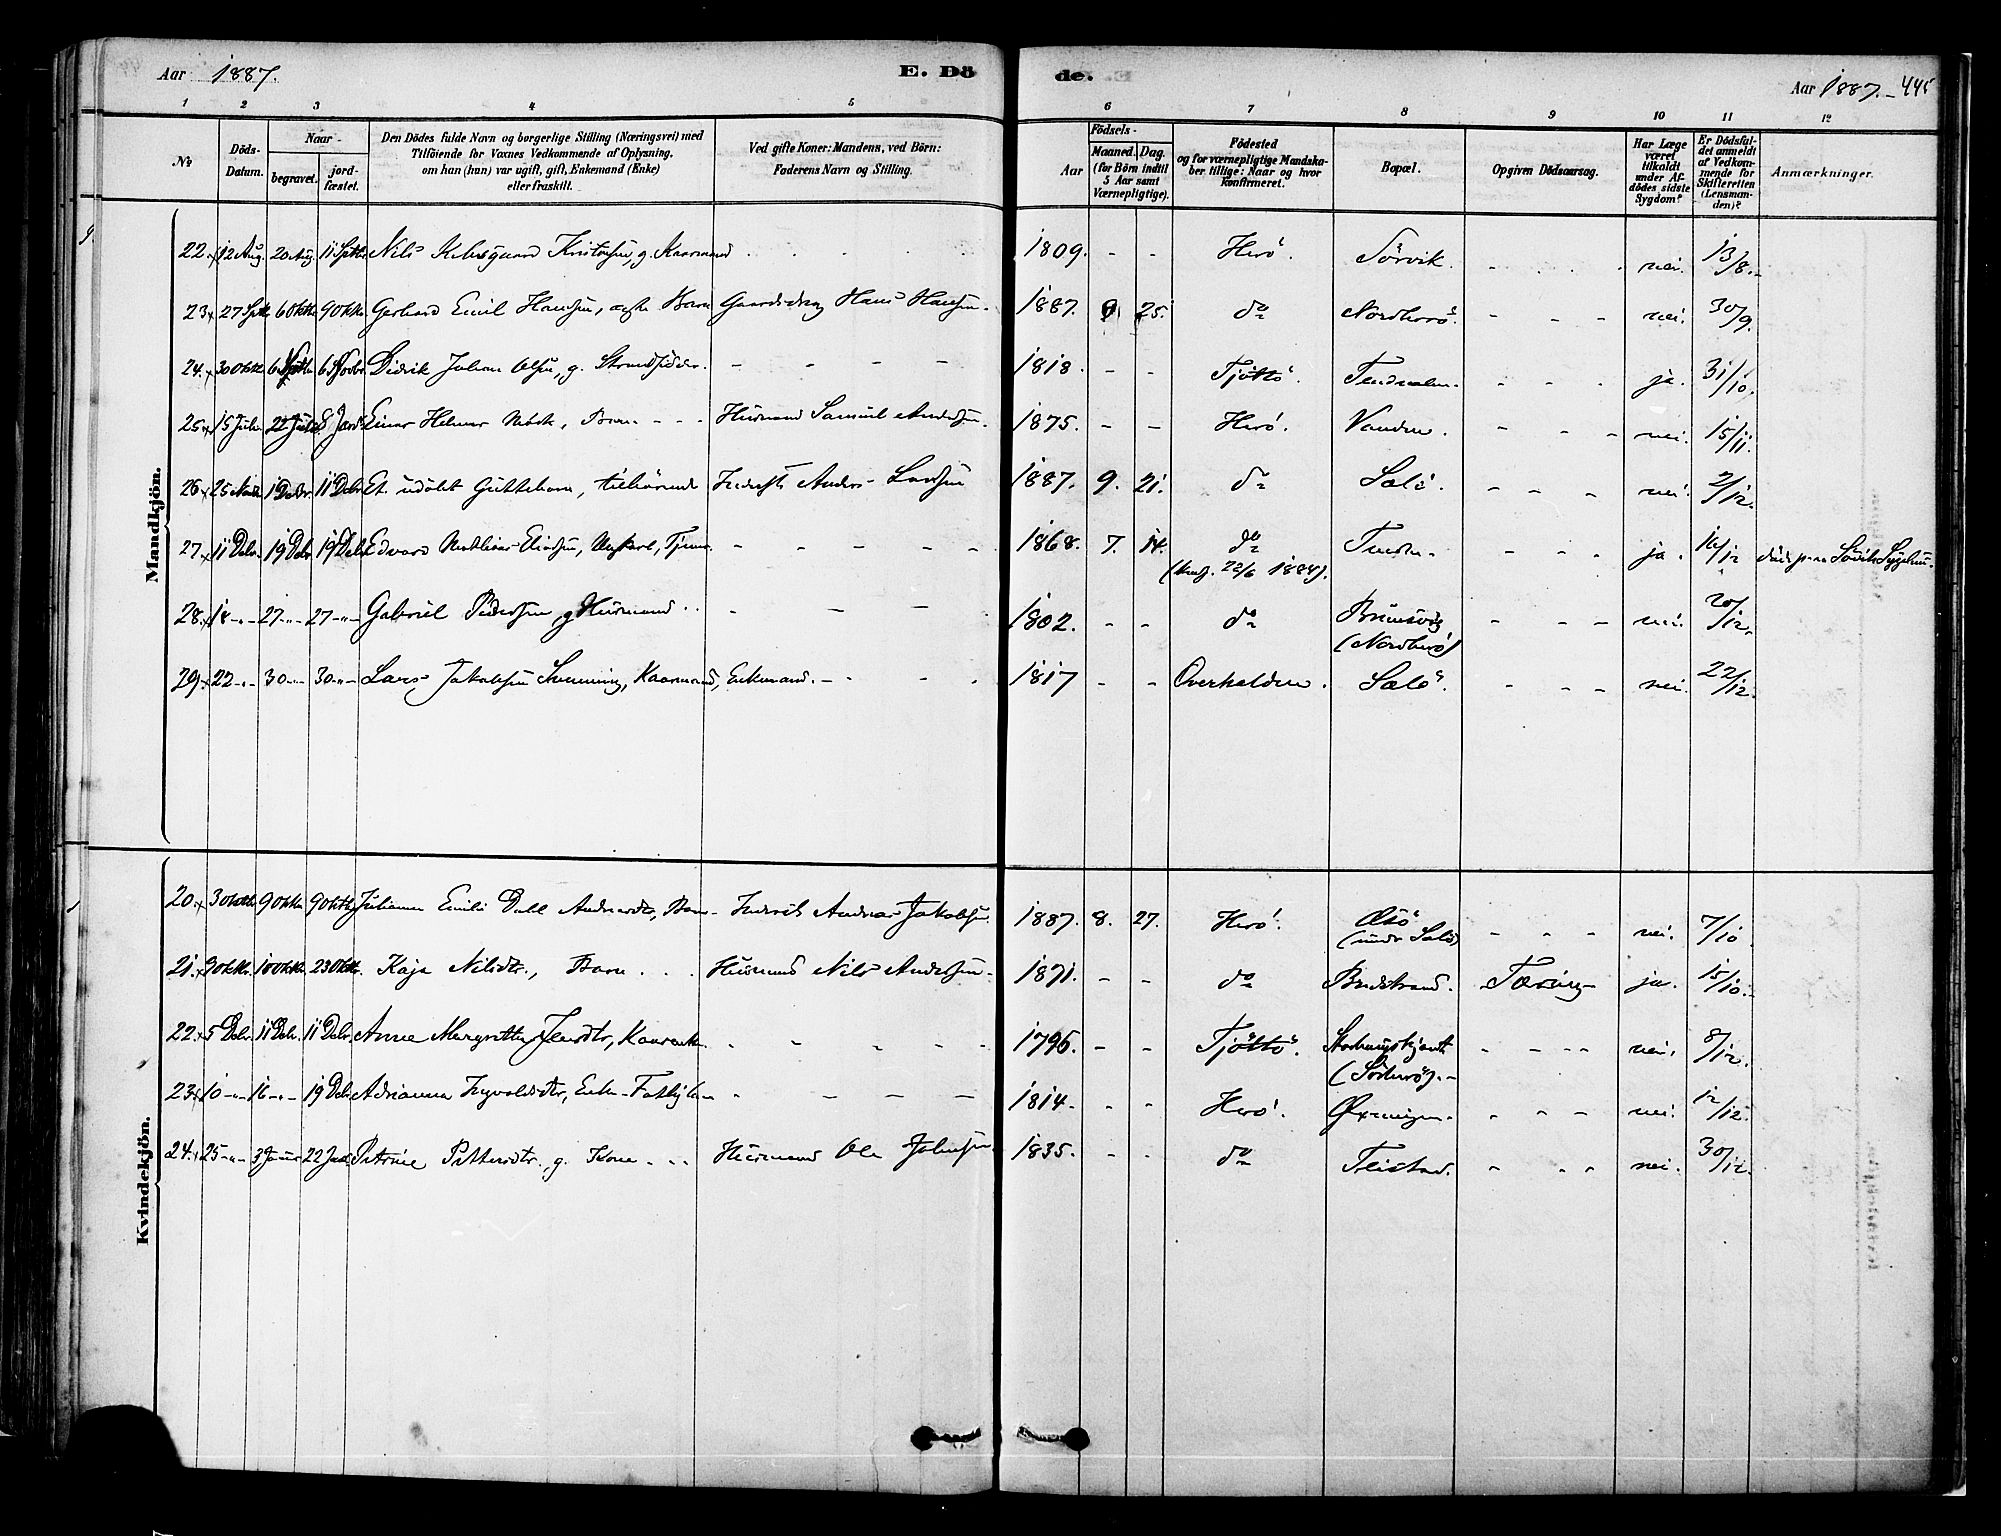 Aar 1887. E. Dö de. Aar 1887. 445
1 2 3 4 5 6 7 8 9 10 11 12
No
Döds-Datum.
Naar-
begravet.
jord-fæstet.
Den Dödes fulde Navn og borgerlige Stilling (Næringsvei) med
Tilföiende for Voxnes Vedkommende af Oplysning,
om han (hun) var ugift, gift, Enkemand (Enke)
eller fraskilt.
Ved gifte Koner: Mandens, ved Börn:
Faderens Navn og Stilling.
Födsels-
Aar
Maaned. Dag.
(for Börn indtil
5 Aar samt
Værnepligtige).
Födested
og for værnepligtige Mandska-
ber tillige: Naar og hvor
konfirmeret.
Bopæl.
Opgiven Dödsaarsag.
Har Læge
været
tilkaldt
under Af-
dödes sidste
Sygdom?
Er Dödsfal-
det anmeldt
af Vedkom-
mende for
Skifteretten
(Lensman-
den)?
Anmærkninger.
Mandkjön.
22. 12 Aug. 20 Aug. 11 Septb. Nils Kristensen, g. Kaarmand 1809. - - Herö. Sörvik. nei. 13/8.
23. 27 Spt. 6 Oktb. 9 Oktb. Gerhard Emil Hansen, ægte Barn Gaardbdrug Hans Hansen. 1887. 9 25. do Nordherö. nei. 30/9.
24. 30 Oktb. 6 Novbr. Didrik Johan Olsen, g. Strandsidder. 1818. - - Tjöttö. ja. 31/10.
25. 15 Juli 22 Juli Einar Helmer, Barn Husmand Samuel Andersen. 1875. - - Herö. nei. 15/11.
26. 25 Novb. 1 Debr. 11 Debr. Et udöbt Guttebarn, tilhörende Inderst Anders Larsen 1887. 9. 21. do Salö. nei. 2/12.
27. 11 Debr. 19 Debr. 19 Debr. Edvard Eliassen, Ungkarl, Tjener 1868. 7. 14. do
(konf. 22/6 1884). ja. 16/12
28. 18 27 27 Gabriel Pedersen, g. Husmand 1802. - - do
(Nordherö) nei. 20/12.
29. 22 30 30 Lars Jakobsen, Kaarmand, Enkemand. 1817 - - Overhalden. Salö. nei. 22/12.
Kvindekjön.
20. 3 Oktb. 9 Oktb. 9 Oktb. Julianna Emilie Dahl Andreasdtr, Barn Inderst Andreas Jakobsen. 1887. 8. 27. Herö.
(under Salö) nei. 7/10
21. 9 Oktb. 18 Oktb. 23 Oktb. Kaja Nilsdtr., Barn Husmand Nils Andersen. 1871. - - do Bredstrand. Tæring ja. 15/10.
22. 5 Debr. 11 Debr. 11 Debr. Anne Margrethe Jensdtr, Kaarenke 1796. - - Tjöttö.
(Sörherö). nei. 8/12.
23. 10 16 19 Debr. Adrianna Ingvaldsdtr, Enke, Fattiglem 1814. - - Herö. Öxningen. nei. 12/12.
24. 25 3 Januar 22 Jan. Petrine Pettersdtr., g. Kone Husmand Ole Johnsen 1835. - - do Teistad. nei. 30/12.